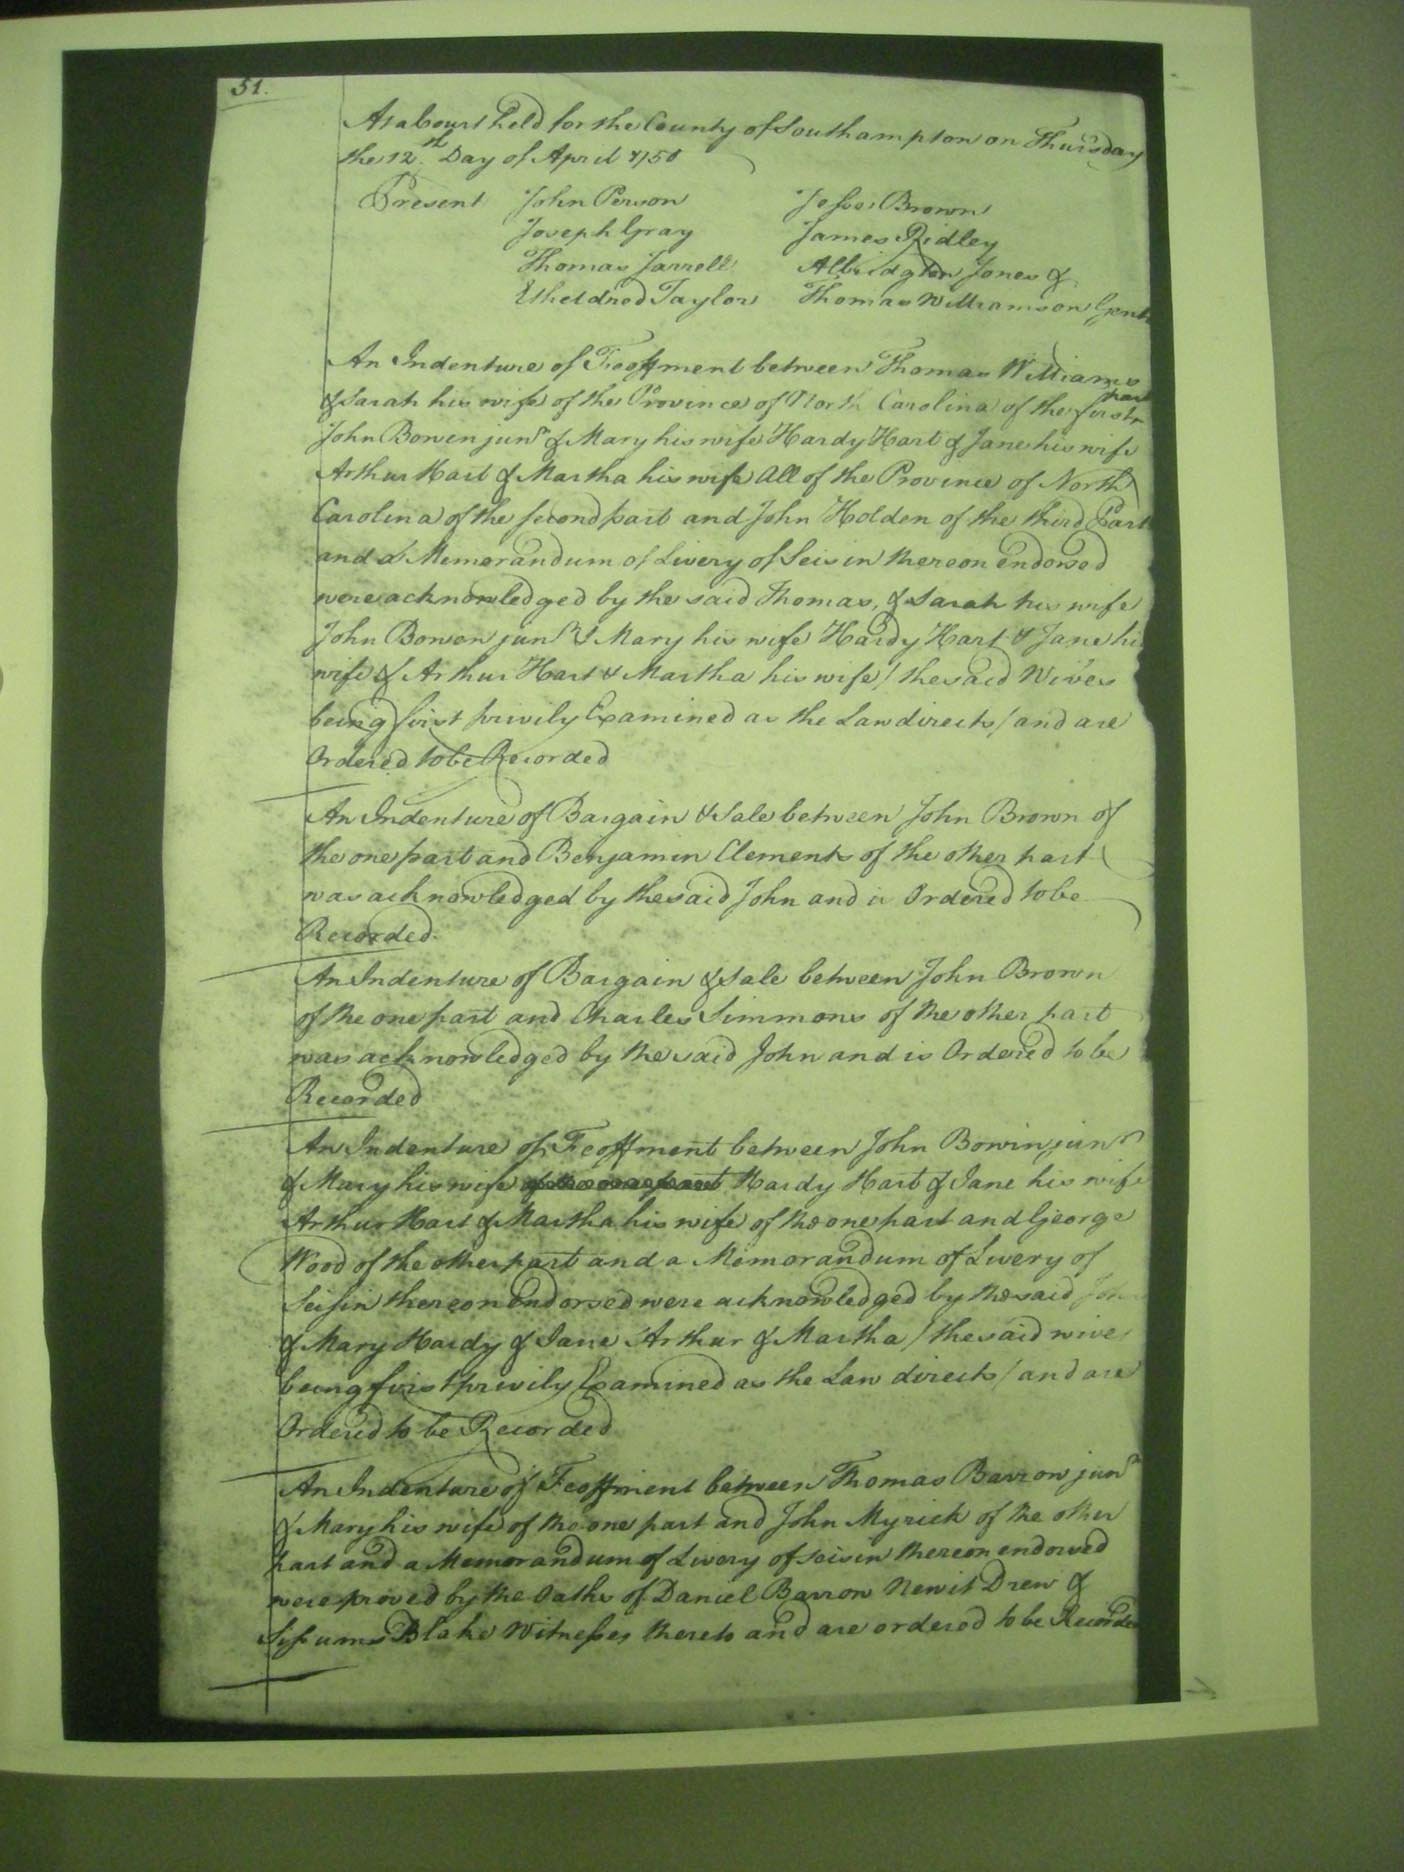 51.
At a Court held for the County of Southampton on Thursday
the 12th Day of April 1750
Present John Person Jesse Brown
Joseph Gray James Ridley
Thomas Jarrell Albridgton Jones &
Etheldred Taylor Thomas Williamson Gent
An Indenture of Feoffment between Thomas Williams
& Sarah his wife of the Province of North Carolina of the first part
John Bowen junr & Mary his wife Hardy Hart & Jane his wife
Arthur Hart & Martha his wife All of the Province of North
Carolina of the second part and John Holden of the third Part
and a Memorandum of Livery of Seisin thereon endorsed
were acknowledged by the said Thomas, & Sarah his wife
John Bowen junr & Mary his wife Hardy Hart & Jane hi
wife & Arthur Hart & Martha his wife / the said Wives
being first privily Examined as the Law directs / and are
Ordered to be Recorded
An Indenture of Bargain & Sale between John Brown of
the one part and Benjamin Clements of the other part
was acknowledged by the said John and is Ordered to be
Recorded.
An Indenture of Bargain & Sale between John Brown
of the one part and Charles Simmons of the other part
was acknowledged by the said John and is Ordered to be
Recorded
An Indenture of Feoffment between John Bowin junr
& Mary his wife of the one part Hardy Hart & Jane his wife
Arthur Hart & Martha his wife of the one part and George
Wood of the other part and a Memorandum of Livery of
Seisin thereon endorsed were acknowledged by the said John
& Mary Hardy & Jane Arthur & Martha / the said wives
being first privily Examined as the Law directs / and are
Ordered to be Recorded
An Indenture of Feoffment between Thomas Barrow junr
& Mary his wife of the one part and John Myrick of the other
part and a Memorandum of Livery of seisin thereon endorsed
were proved by the Oaths of Daniel Barrow Newit Drew &
Blake Witnesses thereto and are ordered to be Recorded